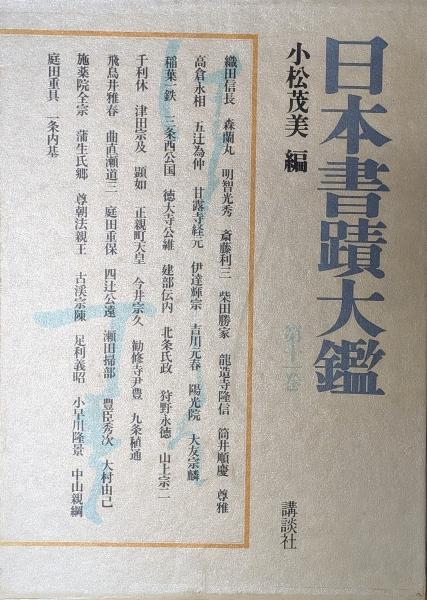 日本書蹟大鑑
第十一巻
小松茂美 編
講談社
織田信長 森蘭丸 明智光秀 斎藤利三 柴田勝家 龍造寺隆信 筒井順慶 尊雅
高倉永相 五辻為仲 甘露寺経元 伊達輝宗 吉川元春 陽光院 大友宗麟
稲葉一鉄 三条西公国 徳大寺公維 建部伝内 北条氏政 狩野永徳 山上宗二
千利休 津田宗及 顕如 正親町天皇 今井宗久 勧修寺尹豊 九条稙通
飛鳥井雅春 曲直瀬道三 庭田重保 四辻公遠 瀬田掃部 豊臣秀次 大村由己
施薬院全宗 蒲生氏郷 尊朝法親王 古渓宗陳 足利義昭 小早川隆景 中山親綱
庭田重具 一条内基